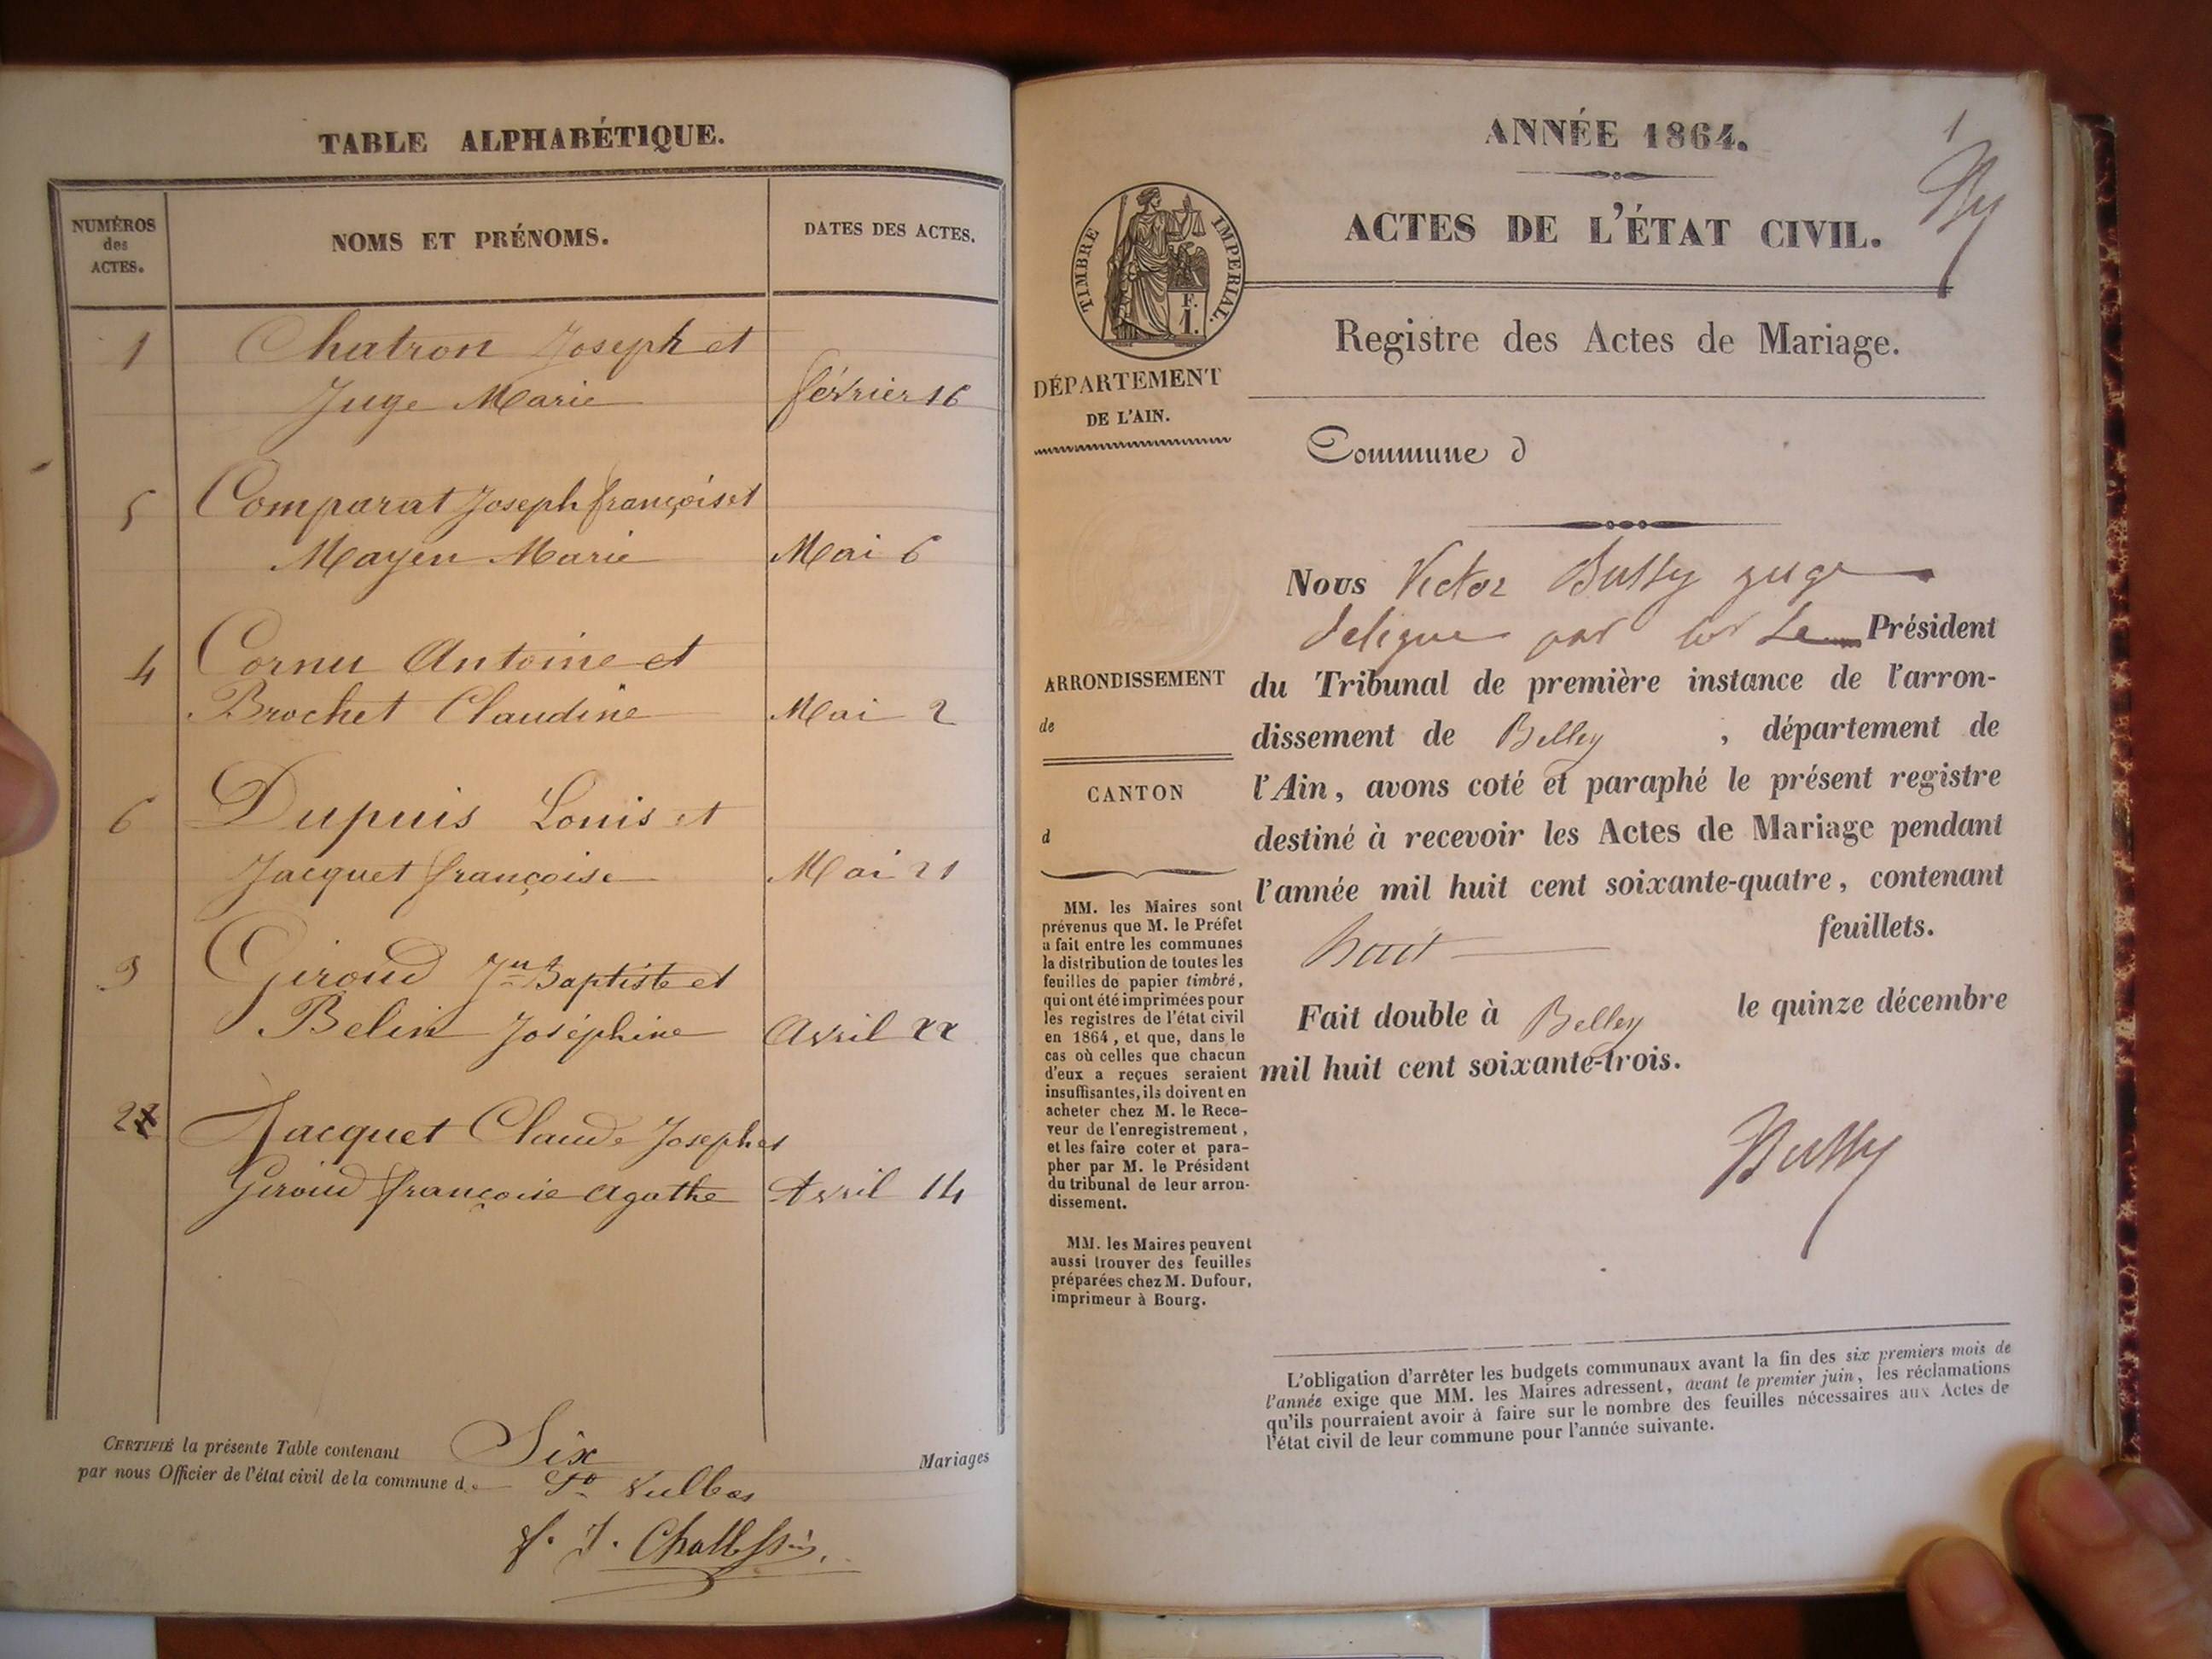 TABLE ALPHABÉTIQUE.
NUMÉROS
des
ACTES.
NOMS ET PRÉNOMS.
DATES DES ACTES.
1 Chatron Joseph et
Juge Marie février 16
5 Comparat Joseph françois et
Mayen Marie Mai 6
4 Cornu Antoine et
Brochet Claudine Mai 2
6 Dupuis Louis et
Jacquet françoise Mai 21
3 Giroud Jn Baptiste et
Belin Joséphine Avril 22
2 Jacquet Claude Joseph et
Giroud françoise Agathe Avril 14
CERTIFIÉ la présente Table contenant Six Mariages
par nous Officier de l'état civil de la commune de St Vulbas
ANNÉE 1864.
1
ACTES DE L'ÉTAT CIVIL.
TIMBRE IMPERIAL.
F.
1.
Registre des Actes de Mariage.
DÉPARTEMENT
DE L'AIN.
Commune d
Nous Victor Bussy juge
délégué par Mr Le Président
du Tribunal de première instance de l'arron-
dissement de Belley , département de
l'Ain, avons coté et paraphé le présent registre
destiné à recevoir les Actes de Mariage pendant
l'année mil huit cent soixante-quatre, contenant
huit feuillets.
Fait double à Belley le quinze décembre
mil huit cent soixante-trois.
Bussy
ARRONDISSEMENT
de
CANTON
d
MM. les Maires sont
prévenus que M. le Préfet
a fait entre les communes
la distribution de toutes les
feuilles de papier timbré,
qui ont été imprimées pour
les registres de l'état civil
en 1864, et que, dans le
cas où celles que chacun
d'eux a reçues seraient
insuffisantes, ils doivent en
acheter chez M. le Rece-
veur de l'enregistrement,
et les faire coter et para-
pher par M. le Président
du tribunal de leur arron-
dissement.
MM. les Maires peuvent
aussi trouver des feuilles
préparées chez M. Dufour,
imprimeur à Bourg.
L'obligation d'arrêter les budgets communaux avant la fin des six premiers mois de
l'année exige que MM. les Maires adressent, avant le premier juin, les réclamations
qu'ils pourraient avoir à faire sur le nombre des feuilles nécessaires aux Actes de
l'état civil de leur commune pour l'année suivante.